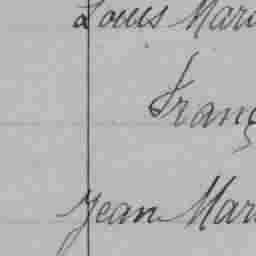 Louis Mari
Franç
Jean Mar